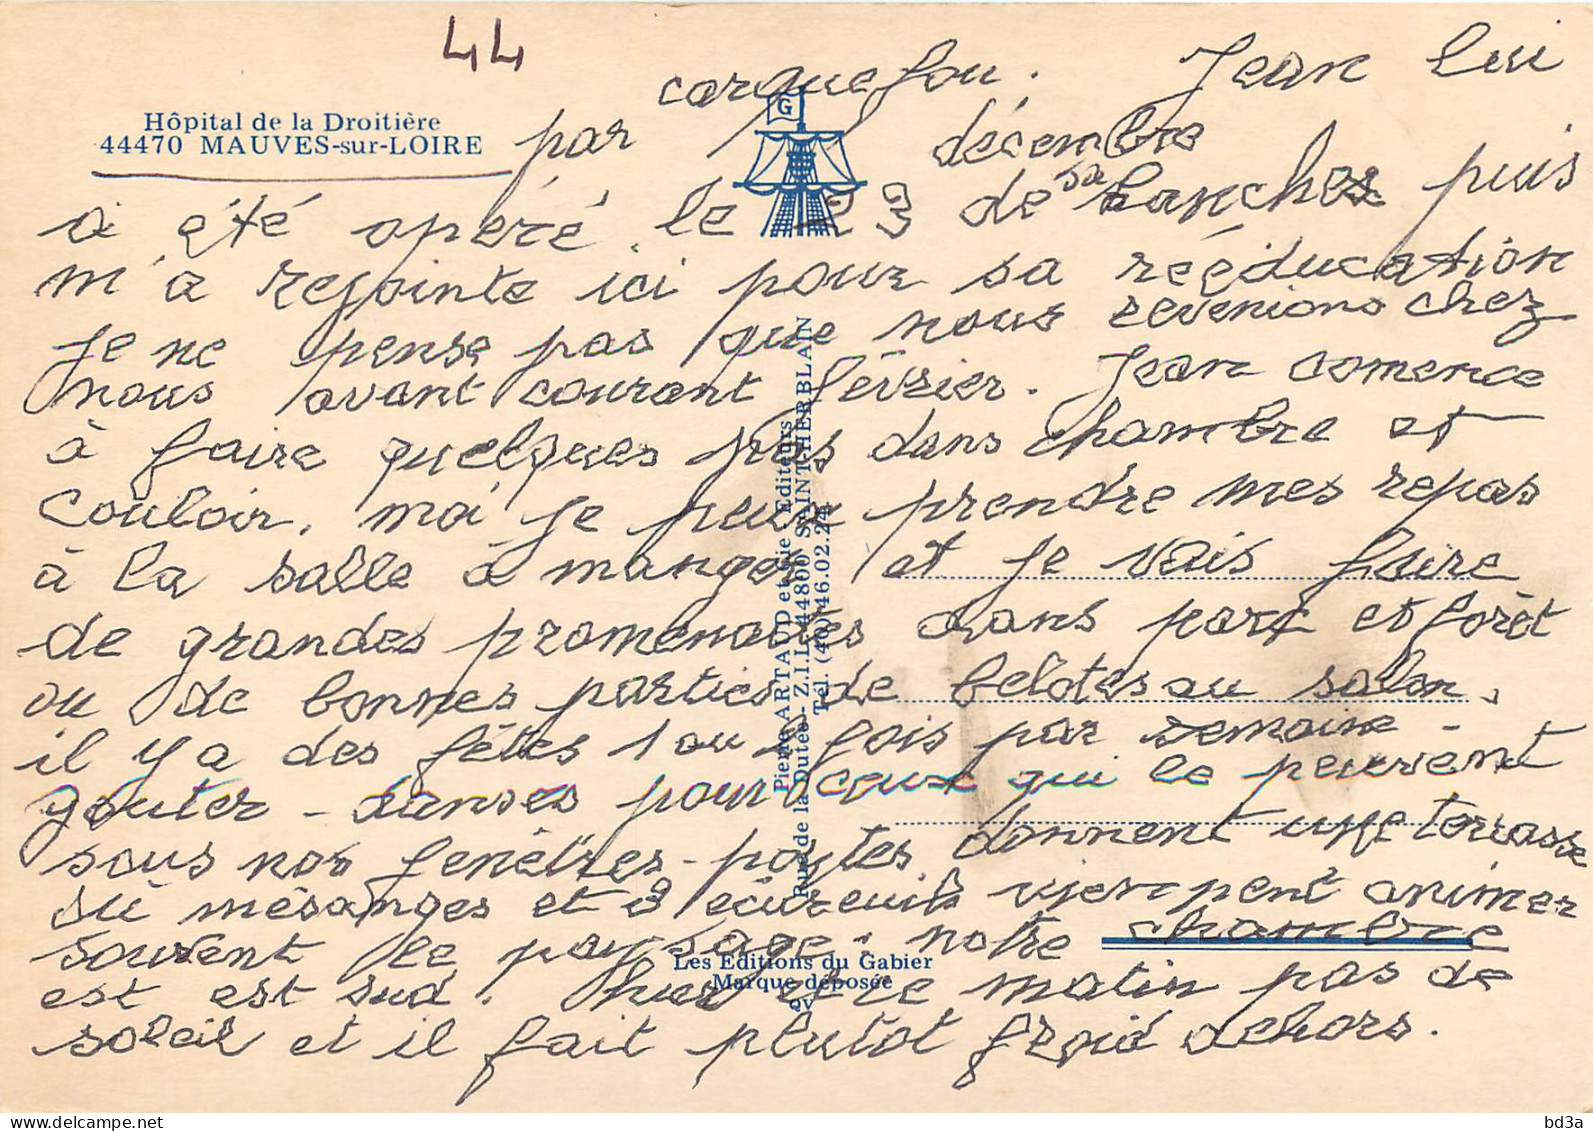 44
Hôpital de la Droitière
44470 MAUVES-sur-LOIRE
par carquefou. Jean lui
a été opéré le 23 décembre de sa hanche puis
m'a rejointe ici pour sa rééducation
je ne pense pas que nous revenions chez
nous avant courant février. Jean comence
à faire quelques pas dans chambre et
couloir, moi je peux prendre mes repas
à la salle à manger et je vais faire
de grandes promenades dans parc et forêt
ou de bonnes parties de belotes au salon.
il y a des fêtes 1 ou fois par semaine -
goûter - danses pour ceux qui le peuvent
sous nos fenêtres - portes donnent une terrasse
où mésanges et 3 écureuils viennent animer
souvent le paysage. notre chambre
est est sud. hier et ce matin pas de
soleil et il fait plutot froid dehors.
G
Pierre ARTAUD et Cie - Editeurs
Rue de la Dutée - Z.I.L. 44800 SAINT-HERBLAIN
Tél. (40) 46.02.24
Les Editions du Gabier
Marque déposée
QV
bd3a